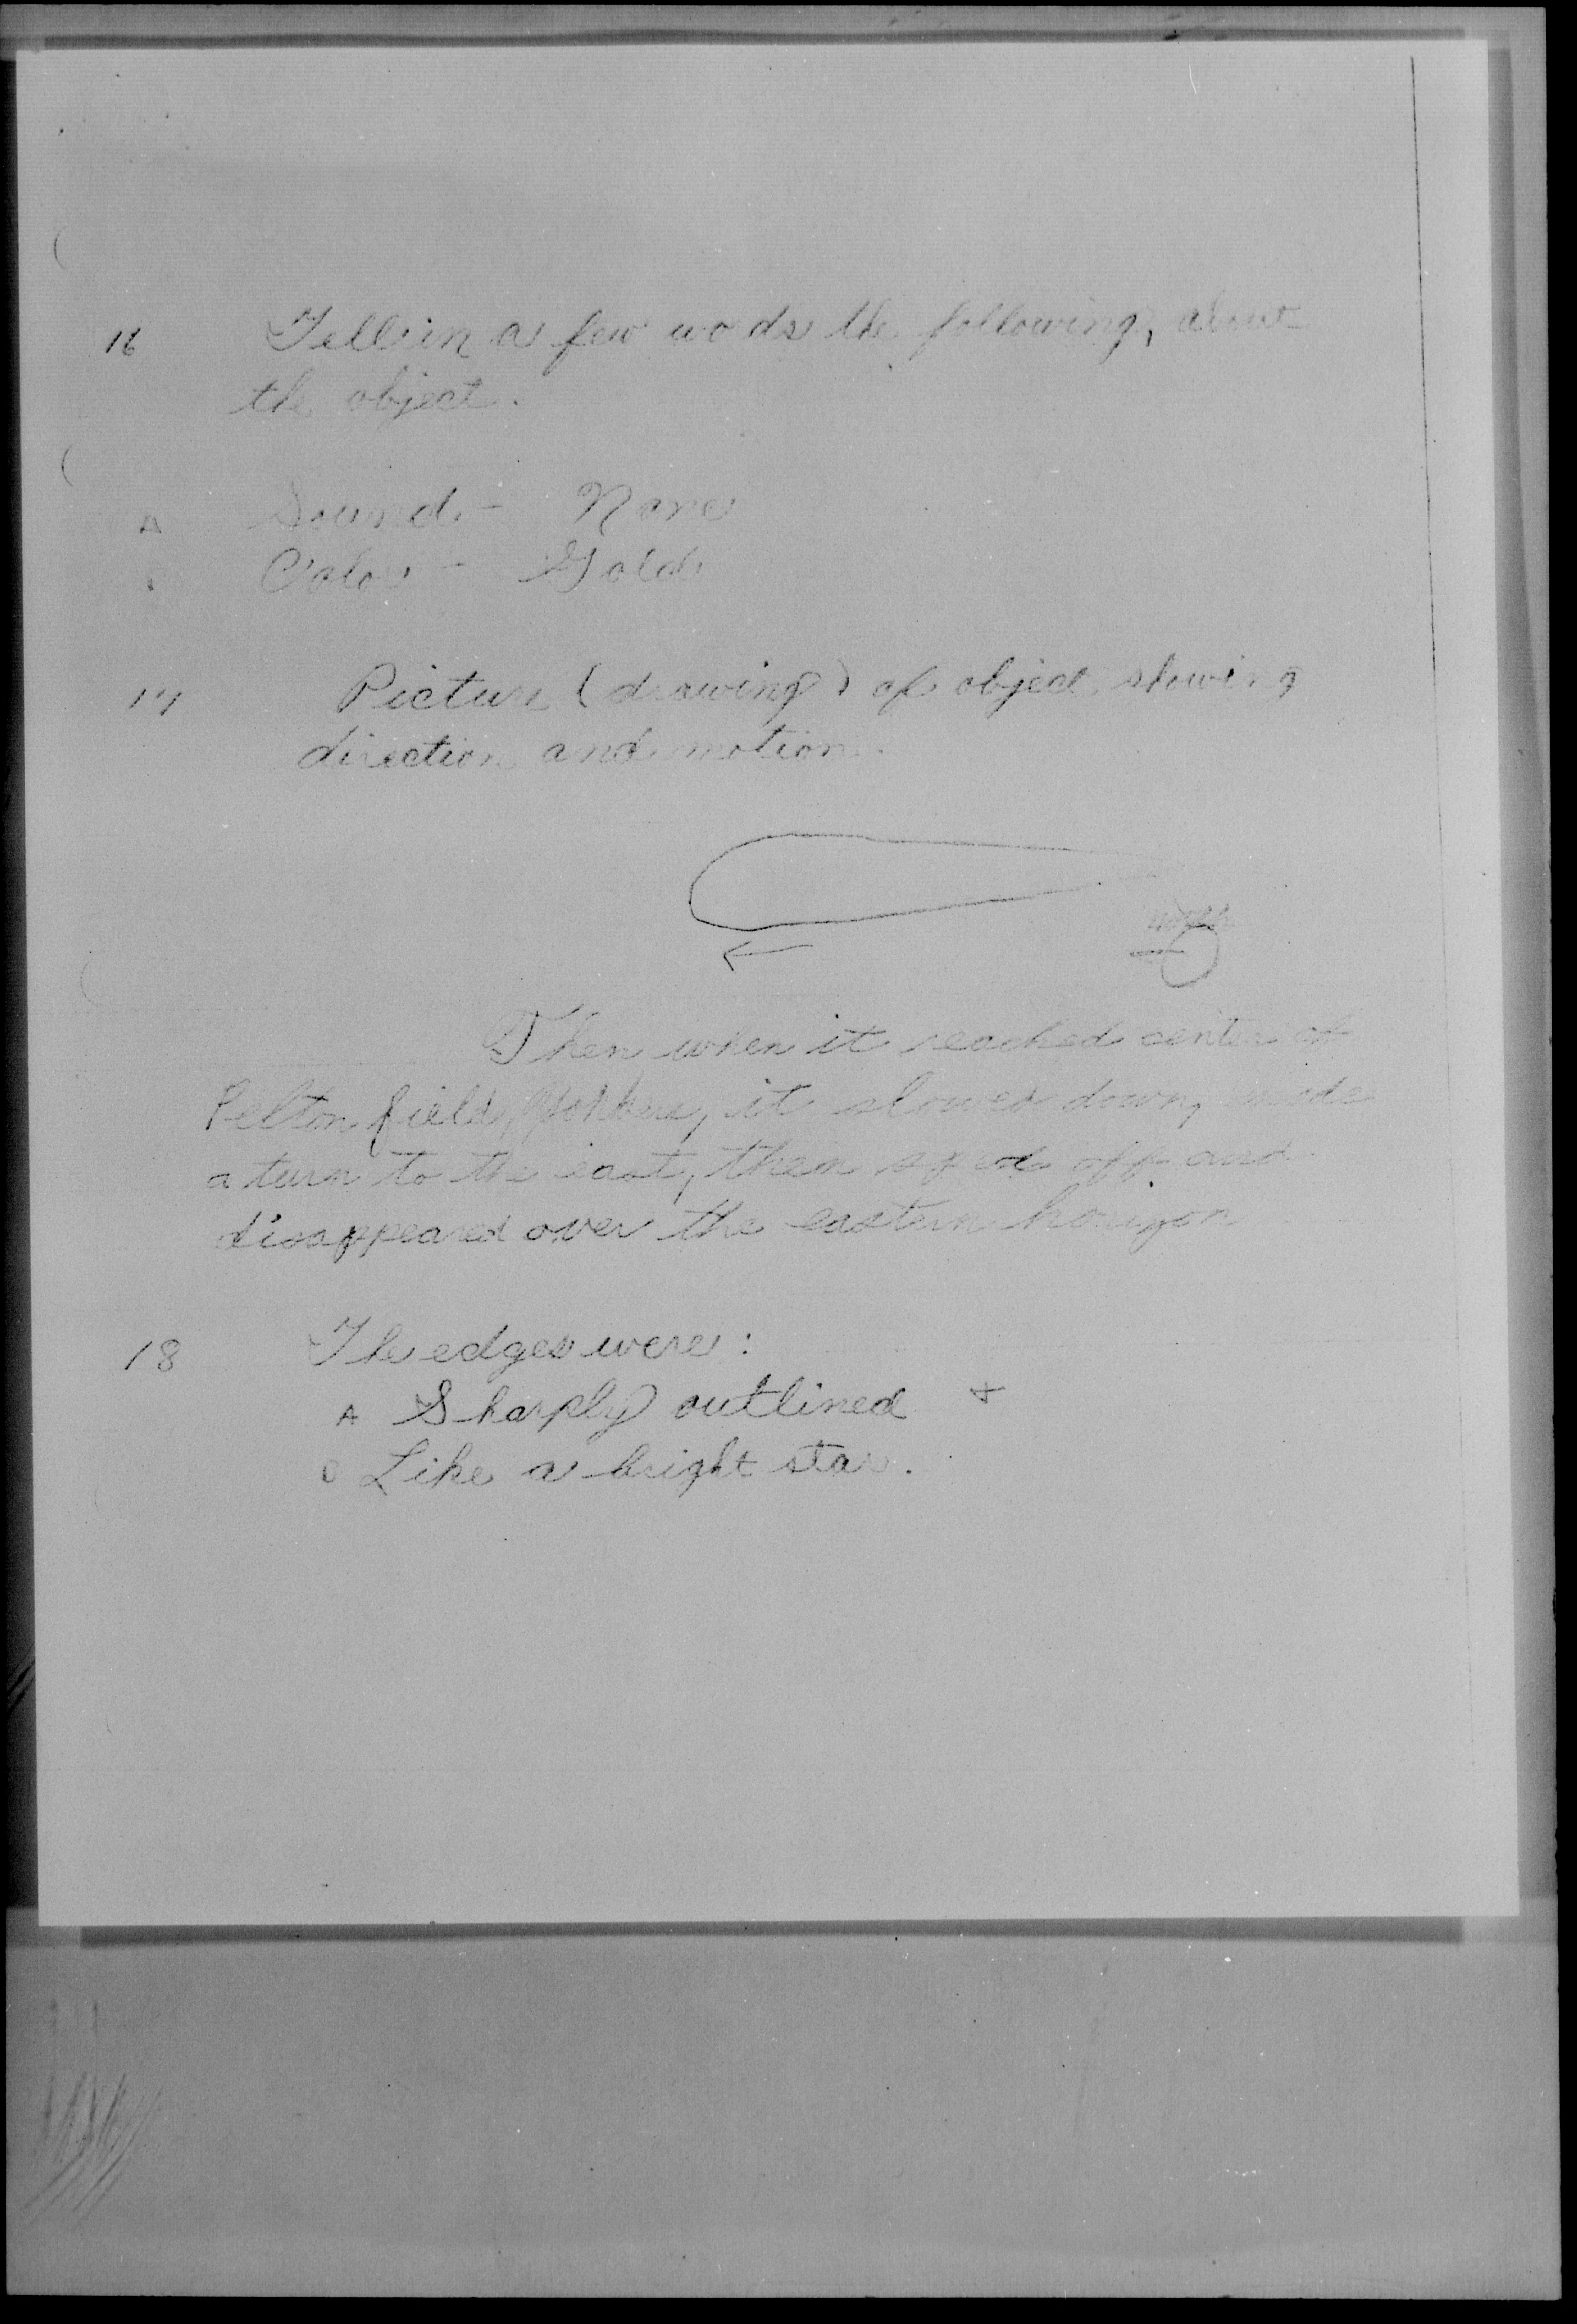 16 Tell in a few words the following, about
the object.
A Sound - None
Color - Gold
17 Picture (drawing) of object showing
direction and motion.
north
Then when it reached center of
Pelton field, Yonkers, it slowed down, made
a turn to the east, then sped off and
disappeared over the eastern horizon
18 The edges were:
A Sharply outlined x
Like a bright star.